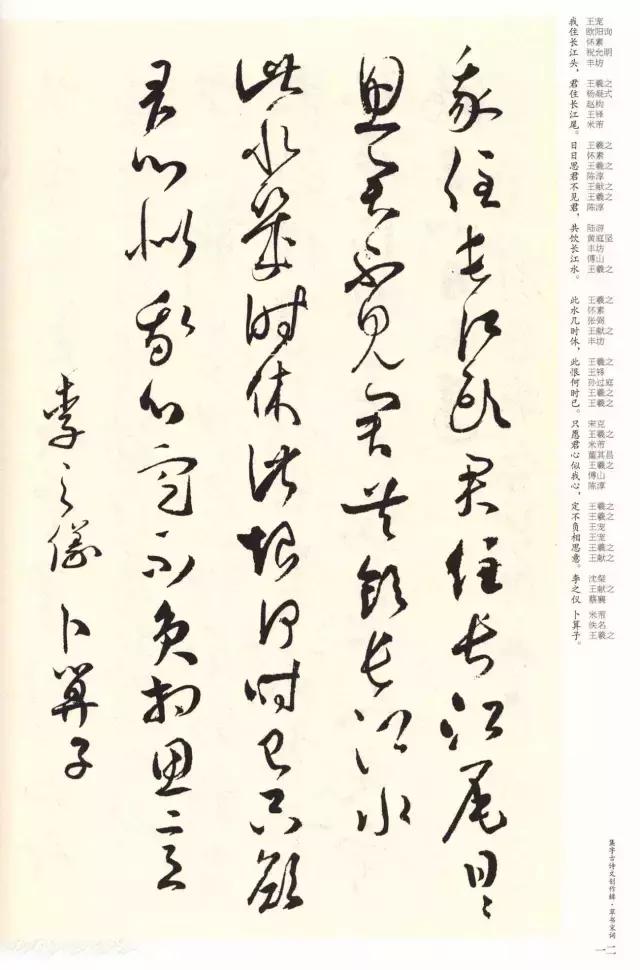 王宠
欧阳询
怀素
祝允明
丰坊
王羲之
杨凝式
赵构
王铎
米芾
王羲之
怀素
王羲之
陈淳
王献之
王羲之
陈淳
陆游
黄庭坚
丰坊
傅山
王羲之
王羲之
怀素
张弼
王献之
丰坊
王羲之
王铎
孙过庭
王羲之
王羲之
宋克
王羲之
米芾
董其昌
王羲之
傅山
陈淳
王羲之
王羲之
王宠
王宠
王羲之
王献之
沈粲
王献之
蔡襄
米芾
佚名
王羲之
我住长江头，君住长江尾。日日思君不见君，共饮长江水。此水几时休，此恨何时已。只愿君心似我心，定不负相思意。李之仪 卜算子。
集字古诗文创作辑·草书宋词
一二
我住長江頭君住長江尾日〻
思君不見君共飲長江水
此水幾時休此恨何時已只願
君心似我心定不負相思意
李之儀 卜算子